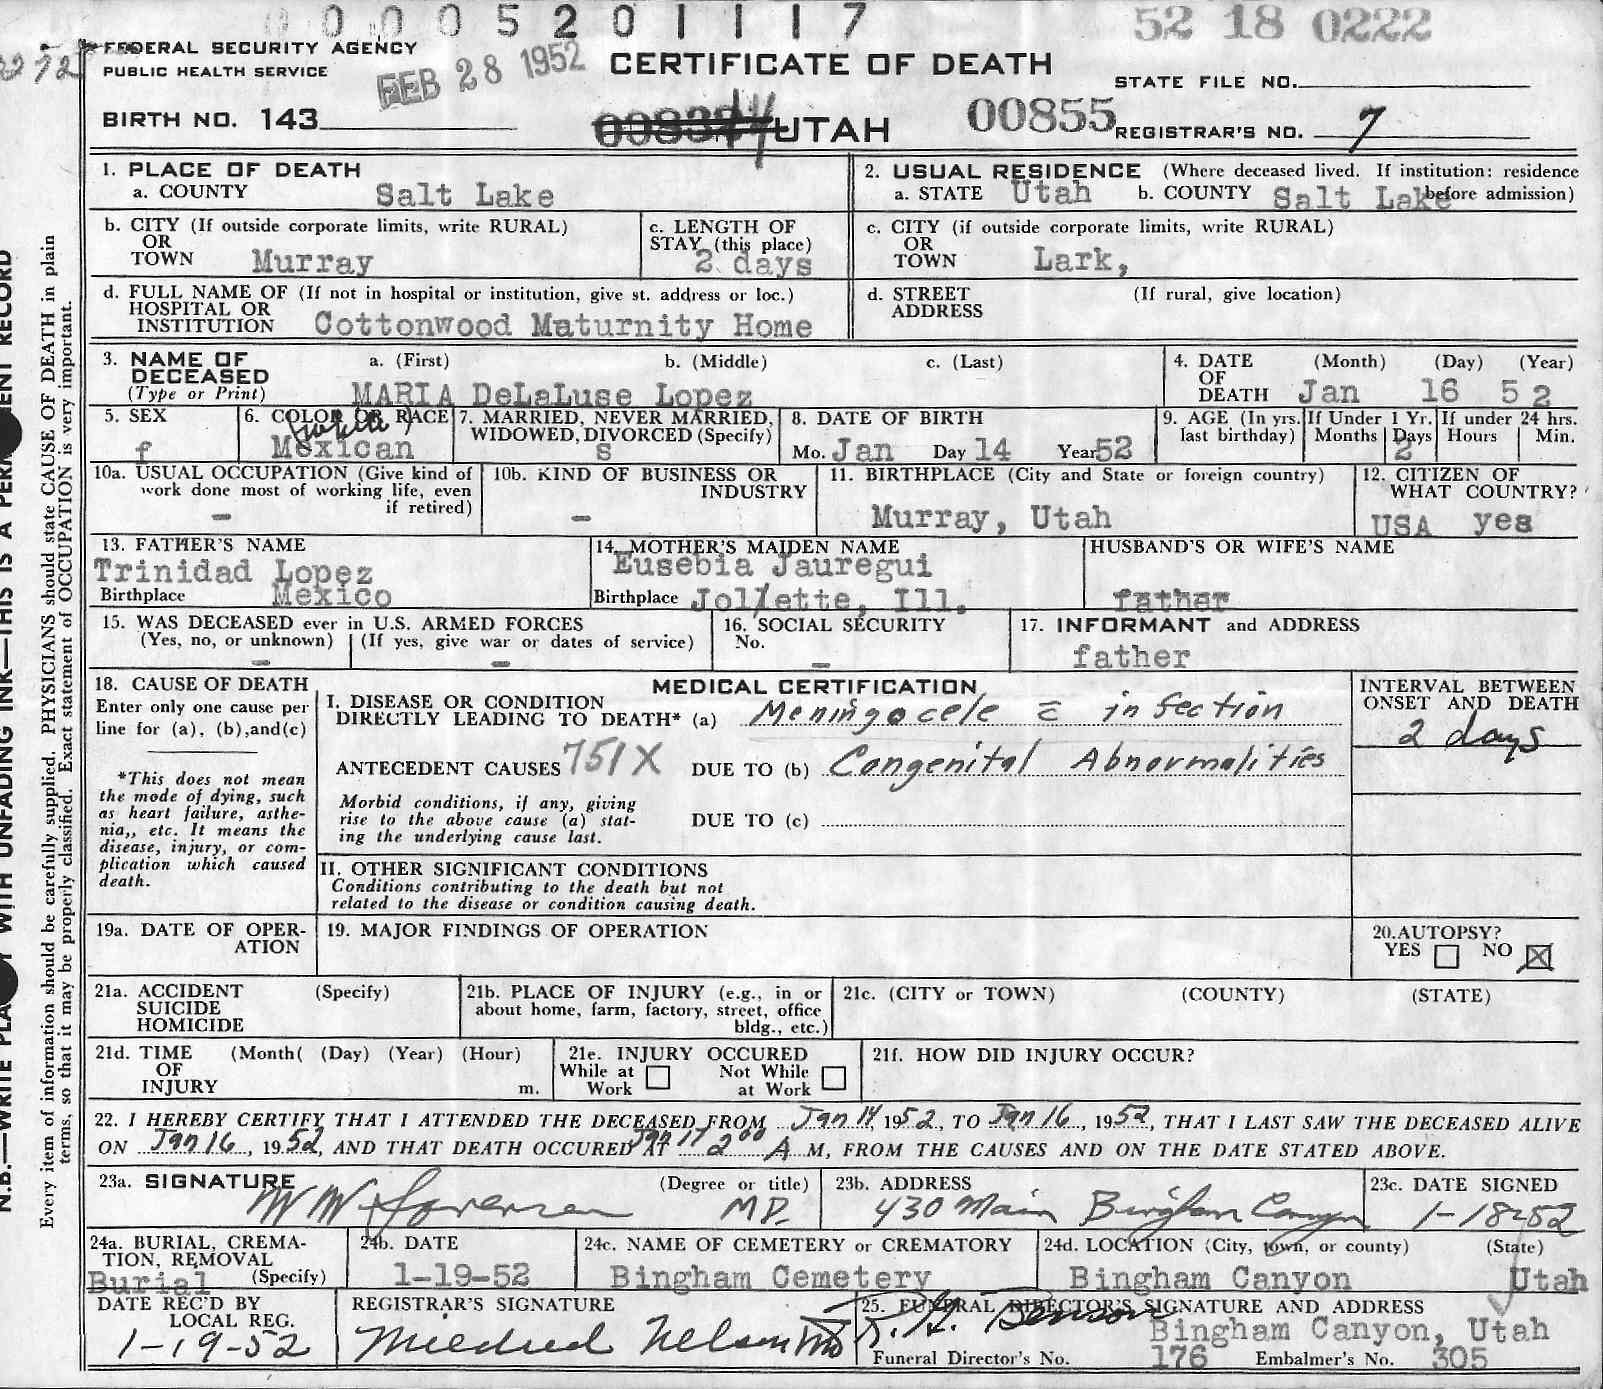 00005201117
52 18 0222
FEDERAL SECURITY AGENCY
PUBLIC HEALTH SERVICE
FEB 28 1952
CERTIFICATE OF DEATH
STATE FILE NO.
BIRTH NO. 143
UTAH
00855
REGISTRAR'S NO. 7
1. PLACE OF DEATH
a. COUNTY Salt Lake
2. USUAL RESIDENCE (Where deceased lived. If institution: residence before admission)
a. STATE Utah b. COUNTY Salt Lake
b. CITY (If outside corporate limits, write RURAL)
OR
TOWN Murray
c. LENGTH OF
STAY (this place)
2 days
c. CITY (if outside corporate limits, write RURAL)
OR
TOWN Lark,
d. FULL NAME OF (If not in hospital or institution, give st. address or loc.)
HOSPITAL OR
INSTITUTION Cottonwood Maturnity Home
d. STREET (If rural, give location)
ADDRESS
3. NAME OF
DECEASED
(Type or Print)
a. (First) b. (Middle) c. (Last)
MARIA DeLaLuse Lopez
4. DATE (Month) (Day) (Year)
OF
DEATH Jan 16 52
5. SEX
f
6. COLOR OR RACE
(white)
Mexican
7. MARRIED, NEVER MARRIED,
WIDOWED, DIVORCED (Specify)
s
8. DATE OF BIRTH
Mo. Jan Day 14 Year 52
9. AGE (In yrs. last birthday)
If Under 1 Yr. Months Days
2
If under 24 hrs. Hours Min.
10a. USUAL OCCUPATION (Give kind of
work done most of working life, even
if retired)
-
10b. KIND OF BUSINESS OR
INDUSTRY
-
11. BIRTHPLACE (City and State or foreign country)
Murray, Utah
12. CITIZEN OF
WHAT COUNTRY?
USA yes
13. FATHER'S NAME
Trinidad Lopez
Birthplace Mexico
14. MOTHER'S MAIDEN NAME
Eusebia Jauregui
Birthplace Jollette, Ill.
HUSBAND'S OR WIFE'S NAME
father
15. WAS DECEASED ever in U.S. ARMED FORCES
(Yes, no, or unknown) (If yes, give war or dates of service)
- -
16. SOCIAL SECURITY
No.
-
17. INFORMANT and ADDRESS
father
18. CAUSE OF DEATH
Enter only one cause per
line for (a), (b),and(c)
*This does not mean
the mode of dying, such
as heart failure, asthe-
nia,, etc. It means the
disease, injury, or com-
plication which caused
death.
MEDICAL CERTIFICATION
I. DISEASE OR CONDITION
DIRECTLY LEADING TO DEATH* (a) Meningocele c̄ infection
ANTECEDENT CAUSES 751X DUE TO (b) Congenital Abnormalities
Morbid conditions, if any, giving
rise to the above cause (a) stat-
ing the underlying cause last.
DUE TO (c)
INTERVAL BETWEEN
ONSET AND DEATH
2 days
II. OTHER SIGNIFICANT CONDITIONS
Conditions contributing to the death but not
related to the disease or condition causing death.
19a. DATE OF OPER-
ATION
19. MAJOR FINDINGS OF OPERATION
20. AUTOPSY?
YES NO
21a. ACCIDENT (Specify)
SUICIDE
HOMICIDE
21b. PLACE OF INJURY (e.g., in or
about home, farm, factory, street, office
bldg., etc.)
21c. (CITY or TOWN) (COUNTY) (STATE)
21d. TIME (Month( (Day) (Year) (Hour)
OF
INJURY m.
21e. INJURY OCCURED
While at Work Not While at Work
21f. HOW DID INJURY OCCUR?
22. I HEREBY CERTIFY THAT I ATTENDED THE DECEASED FROM Jan 14, 1952, TO Jan 16, 1952, THAT I LAST SAW THE DECEASED ALIVE
ON Jan 16, 1952, AND THAT DEATH OCCURED AT Jan 17 2 00 A M, FROM THE CAUSES AND ON THE DATE STATED ABOVE.
23a. SIGNATURE (Degree or title)
W W Sorensen MD.
23b. ADDRESS
430 Main Bingham Canyon
23c. DATE SIGNED
1-18-52
24a. BURIAL, CREMA-
TION, REMOVAL
(Specify)
Burial
24b. DATE
1-19-52
24c. NAME OF CEMETERY or CREMATORY
Bingham Cemetery
24d. LOCATION (City, town, or county) (State)
Bingham Canyon Utah
DATE REC'D BY
LOCAL REG.
1-19-52
REGISTRAR'S SIGNATURE
Mildred Nelson
25. FUNERAL DIRECTOR'S SIGNATURE AND ADDRESS
R. H. Benson
Bingham Canyon, Utah
Funeral Director's No. 176 Embalmer's No. 305
Every item of information should be carefully supplied. PHYSICIANS should state CAUSE OF DEATH in plain
terms, so that it may be properly classified. Exact statement of OCCUPATION is very important.